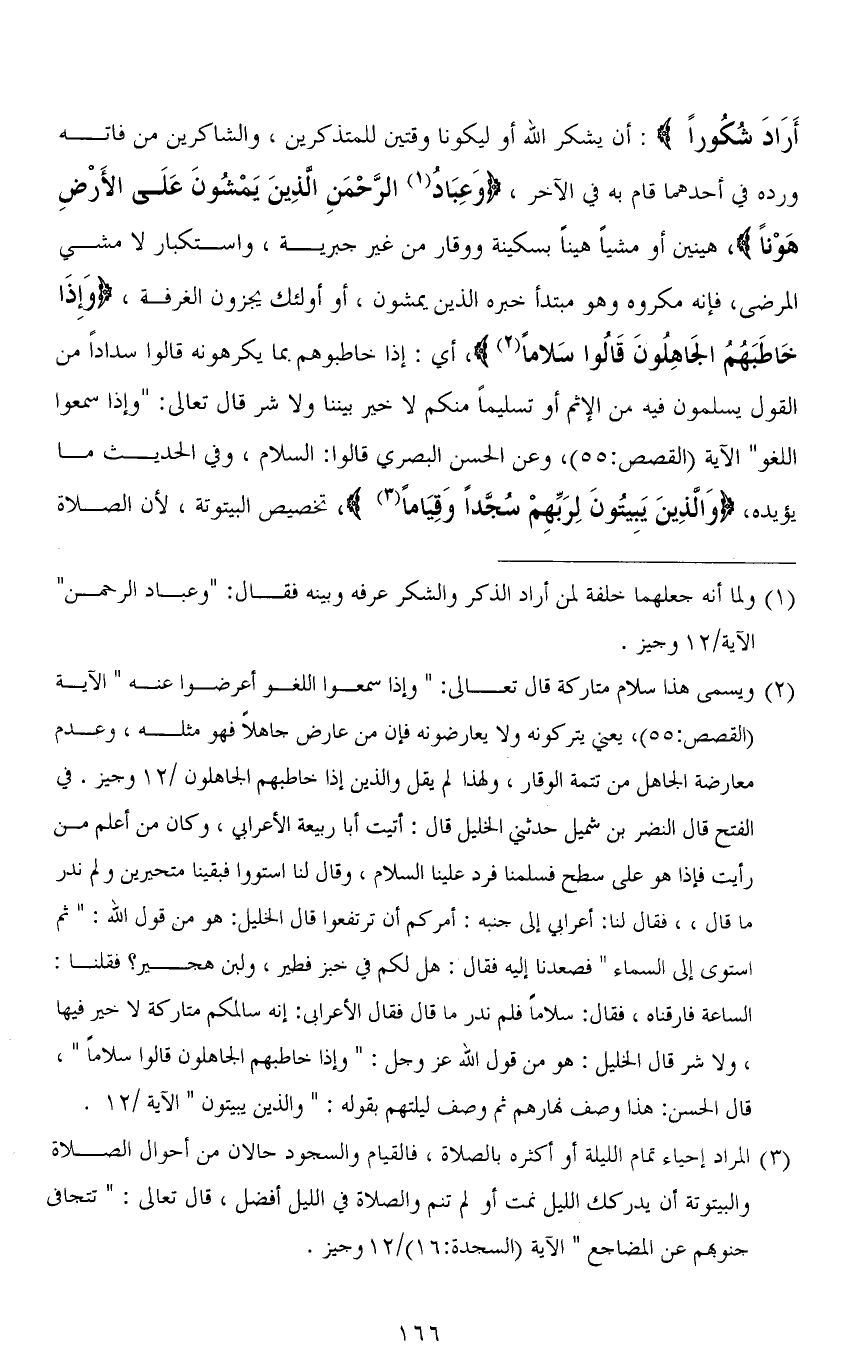 أَرَادَ شُكُوراً ﴾ : أن يشكر الله أو ليكونا وقتين للمتذكرين ، والشاكرين من فاتـــه
ورده في أحدهما قام به في الآخر ، ﴿وَعِبَادُ(١) الرَّحْمَنِ الَّذِينَ يَمْشُونَ عَلَــى الأَرْضِ
هَوْناً ﴾، هينين أو مشياً هيناً بسكينة ووقار من غير جبريـــة ، واســتكبار لا مشــي
المرضى، فإنه مكروه وهو مبتدأ خبره الذين يمشون ، أو أولئك يجزون الغرفـة ، ﴿وَإِذَا
خَاطَبَهُمُ الجَاهِلُونَ قَالُوا سَلاماً(٢) ﴾، أي : إذا خاطبوهم بما يكرهونه قالوا سداداً من
القول يسلمون فيه من الإثم أو تسليماً منكم لا خير بيننا ولا شر قال تعالى: "وإذا سمعوا
اللغو" الآية (القصص:٥٥)، وعن الحسن البصري قالوا: السلام ، وفي الحديـــث مـا
يؤيده، ﴿وَالَّذِينَ يَبِيتُونَ لِرَبِّهِمْ سُجَّداً وَقِيَاماً(٣) ﴾، تخصيص البيتوتة ، لأن الصــلاة
(١) ولما أنه جعلهما خلفة لمن أراد الذكر والشكر عرفه وبينه فقـــال: "وعبــاد الرحمــن"
الآية/١٢ وجيز .
(٢) ويسمى هذا سلام متاركة قال تعـــالى: " وإذا سمعــوا اللغــو أعرضــوا عنــه " الآيــة
(القصص:٥٥)، يعني يتركونه ولا يعارضونه فإن من عارض جاهلاً فهو مثلـــه ، وعــدم
معارضة الجاهل من تتمة الوقار ، ولهذا لم يقل والذين إذا خاطبهم الجاهلون /١٢ وجيز . في
الفتح قال النضر بن شميل حدثني الخليل قال : أتيت أبا ربيعة الأعرابي ، وكان من أعلم مــن
رأيت فإذا هو على سطح فسلمنا فرد علينا السلام ، وقال لنا استووا فبقينا متحيرين ولم ندر
ما قال ، ، فقال لنا: أعرابي إلى جنبه : أمركم أن ترتفعوا قال الخليل: هو من قول الله : " ثم
استوى إلى السماء " فصعدنا إليه فقال : هل لكم في خبز فطير ، ولبن هجـــير؟ فقلنــا :
الساعة فارقناه ، فقال: سلاماً فلم ندر ما قال فقال الأعرابى: إنه سالمكم متاركة لا خير فيها
، ولا شر قال الخليل : هو من قول الله عز وجل : " وإذا خاطبهم الجاهلون قالوا سلاماً " ،
قال الحسن: هذا وصف نهارهم ثم وصف ليلتهم بقوله : " والذين يبيتون " الآية /١٢ .
(٣) المراد إحياء تمام الليلة أو أكثره بالصلاة ، فالقيام والسجود حالان من أحوال الصـــلاة
والبيتوتة أن يدركك الليل نمت أو لم تنم والصلاة في الليل أفضل ، قال تعالى : " تتجافى
جنوبهم عن المضاجع " الآية (السجدة:١٦)/١٢ وجيز .
١٦٦